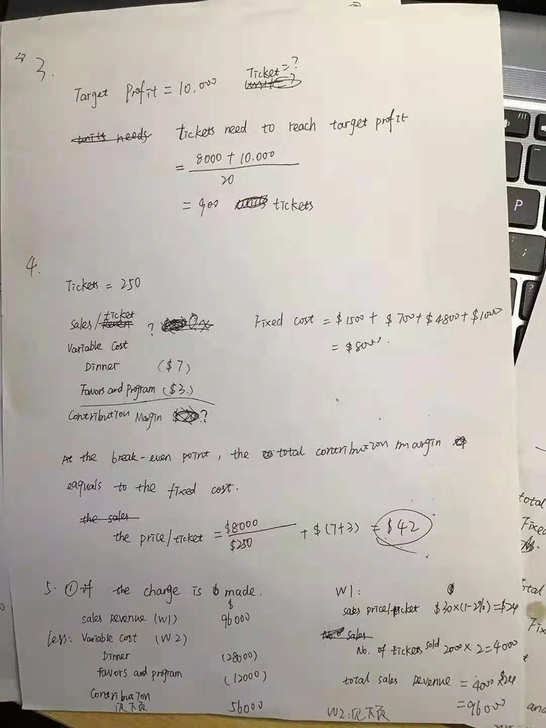 3.
Target Profit = 10.000 Ticket=?
units needs Tickets need to reach target profit
= 8000 + 10.000 / 20
= 900 tickets
4.
Tickets = 250
Sales/ticket ? Fixed cost = $1500 + $700 + $4800 + $1000
Variable Cost = $8000.
Dinner ($7)
Favors and Program ($3)
Contribution Margin ?
At the break-even point, the total contribution margin
eaquals to the fixed cost.
the sales
the price/ticket = $8000 / $250 + $(7+3) = $42
5. ① if the charge is made.
$
sales revenue (W1) 96000
Less: Variable Cost (W2)
Dinner (28000)
Favors and program (12000)
Contribution 56000
见下页
W1: $
sales price/ticket $30×(1-2%)=$24
sales
No. of tickets sold 2000 × 2 = 4000
total sales revenue = 4000 × $24
= 96000
W2: 见下页
total
Fixed
total
Fix
and
P